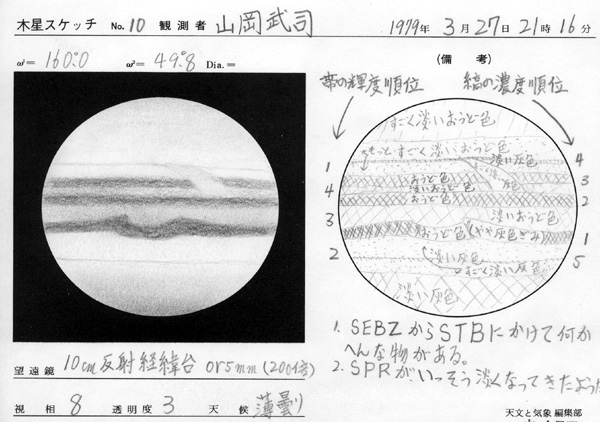 木星スケッチ No. 10 観測者 山岡武司 1979年 3月27日21時16分
ω¹= 160°.0 ω²= 49°.8 Dia.=
(備考)
帯の輝度順位 縞の濃度順位
すごく淡いおうど色
もっとすごく淡いおうど色
淡い灰色
1 4
淡い灰色
おうど色
3
4 淡いおうど色
おうど色 2
3 淡いおうど色
おうど色 (やや灰色ぎみ) 1
2 淡い灰色
すごく淡い灰色 5
淡い灰色
1. SEBZからSTBにかけて何か
へんな物がある。
2. SPRが、いっそう淡くなってきたような
望遠鏡 10cm反射経緯台 or5mm(200倍)
視相 8 透明度 3 天候 薄曇り
天文と気象 編集部